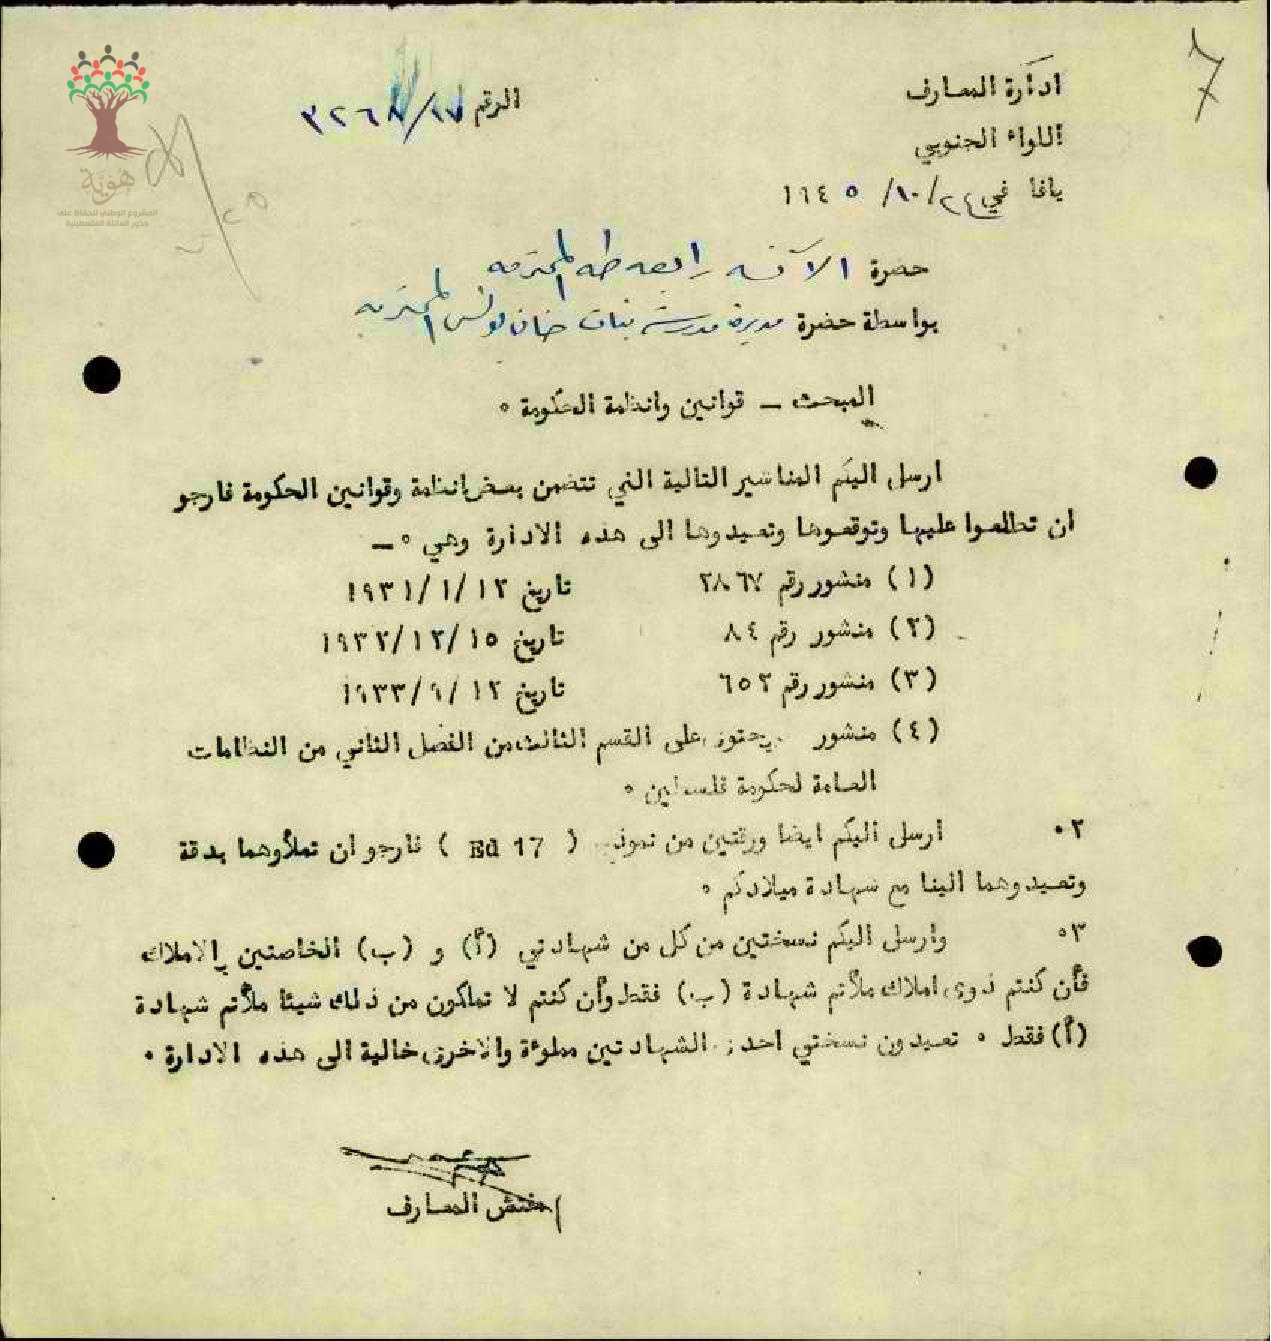 7
ادارة المعارف
اللواء الجنوبي
الرقم ٣٢٦٨/١٧
يافا في ٢٤/١٠/ ١٩٤٥
هوية
المشروع الوطني للحفاظ على
جذور العائلة الفلسطينية
حضرة الآنسه رابعه طه المحترمه
بواسطة حضرة مديرة مدرسة بنات خان يونس المحترمه
المبحث – قوانين وانظمة الحكومة ٠
ارسل اليكم المناشير التالية التي تتضمن بعض انظمة وقوانين الحكومة فارجو
ان تطلعوا عليها وتوقعوها وتعيدوها الى هذه الادارة وهي ٠–
(١) منشور رقم ٢٨٦٧ تاريخ ١٢/١/١٩٣١
(٢) منشور رقم ٨٤ تاريخ ١٥/١٢/١٩٣٢
(٣) منشور رقم ٦٥٢ تاريخ ١٢/٩/١٩٣٣
(٤) منشور يحتوى على القسم الثالث من الفصل الثاني من النظامات
العامة لحكومة فلسطين ٠
٠٢ ارسل اليكم ايضا ورقتين من نموذج ( Ed 17 ) فارجو ان تملأوهما بدقة
وتعيدوهما الينا مع شهادة ميلادكم ٠
٠٣ وارسل اليكم نسختين من كل من شهادتي (أ) و (ب) الخاصتين بالاملاك
فأن كنتم ذوى املاك ملأتم شهادة (ب) فقط وأن كنتم لا تملكون من ذلك شيئا ملأتم شهادة
(أ) فقط ٠ تعيدون نسختي احدى الشهادتين مملوءة والاخرى خالية الى هذه الادارة ٠
مفتش المعارف